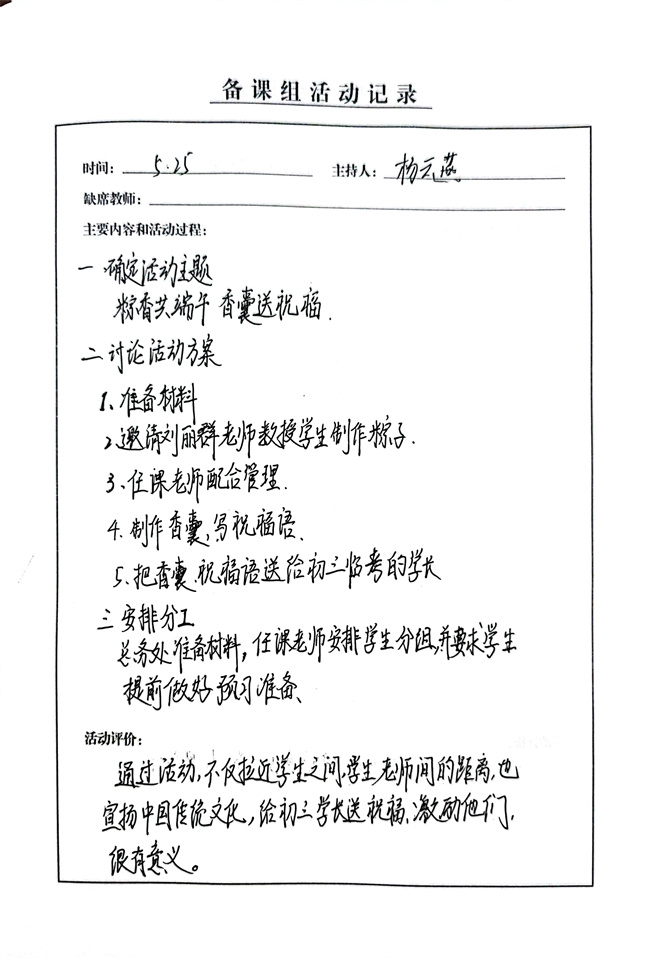 备课组活动记录
时间： 5.25 主持人： 杨元燕
缺席教师：
主要内容和活动过程：
一 确定活动主题
粽香共端午 香囊送祝福.
二 讨论活动方案
1、准备材料
2、邀请刘丽群老师教授学生制作粽子.
3、任课老师配合管理.
4、制作香囊,写祝福语、
5、把香囊、祝福语送给初三临考的学长
三 安排分工
总务处准备材料，任课老师安排学生分组,并要求学生
提前做好预习准备、
活动评价：
通过活动,不仅拉近学生之间,学生老师间的距离,也
宣扬中国传统文化,给初三学长送祝福、激励他们,
很有意义。